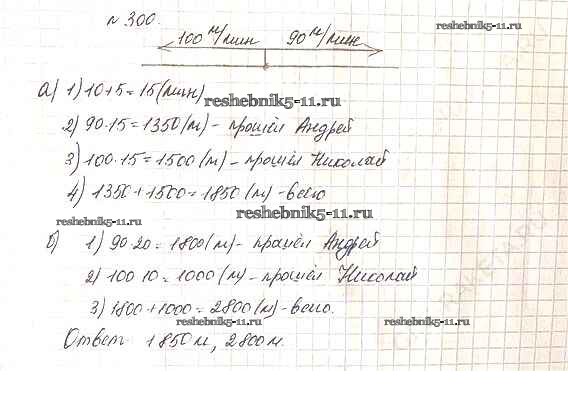 № 300.
reshebnik5-11.ru
100 м/мин 90 м/мин
а) 1) 10+5=15(мин)
reshebnik5-11.ru
2) 90·15=1350(м)- прошёл Андрей
3) 100·15=1500(м)- прошёл Николай
4) 1350+1500=1850(м)-всего
reshebnik5-11.ru
reshebnik5-11.ru
б) 1) 90·20=1800(м)- прошёл Андрей
2) 100·10=1000(м)- прошёл Николай
3) 1800+1000=2800(м)-всего.
reshebnik5-11.ru
reshebnik5-11.ru
Ответ 1850м, 2800м.